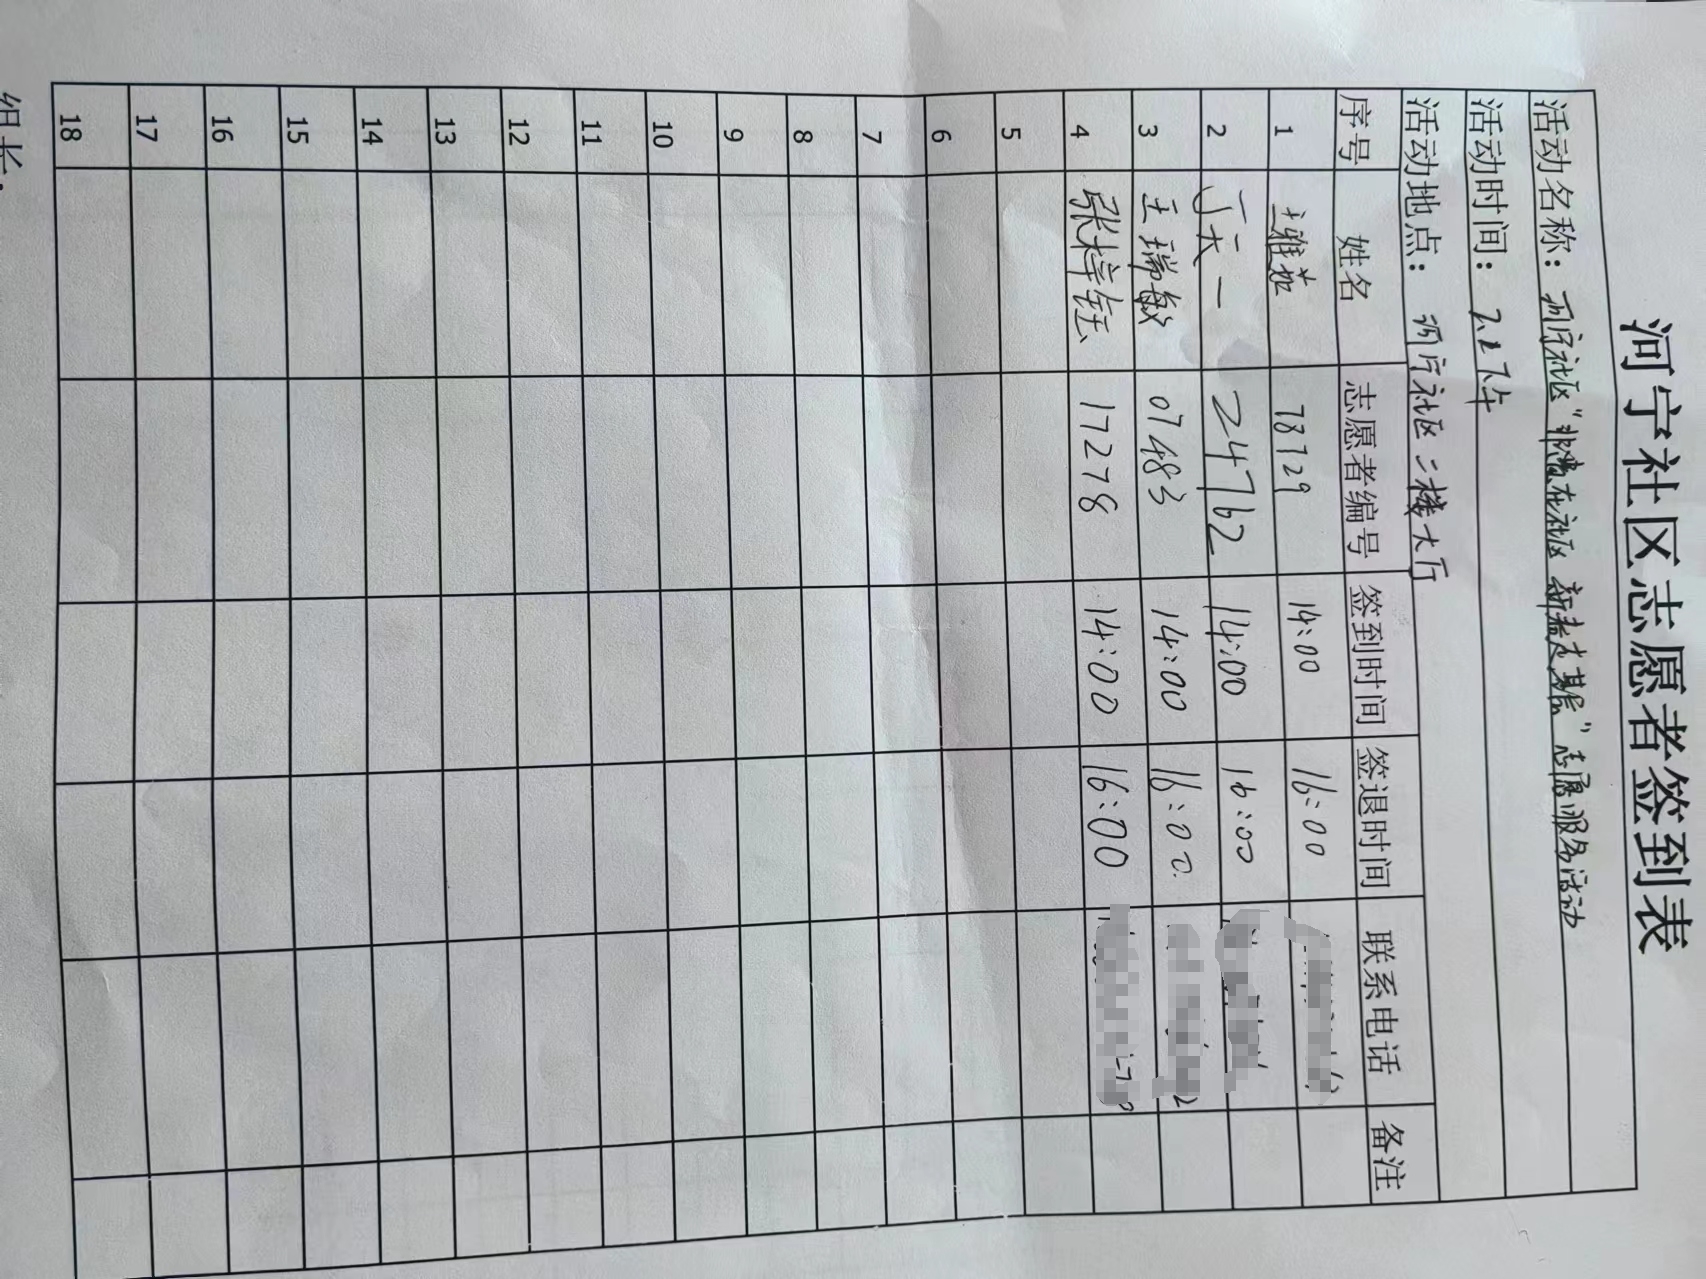 河宁社区志愿者签到表
活动名称：河宁社区“非遗在社区 新春走基层”志愿服务活动
活动时间：2.2下午
活动地点：河宁社区二楼大厅
序号 姓名 志愿者编号 签到时间 签退时间 联系电话 备注
1 王雅茹 78729 14:00 16:00
2 丁天一 24762 14:00 16:00
3 王瑞敏 07483 14:00 16:00
4 张梓钰 17278 14:00 16:00
5
6
7
8
9
10
11
12
13
14
15
16
17
18
组长：